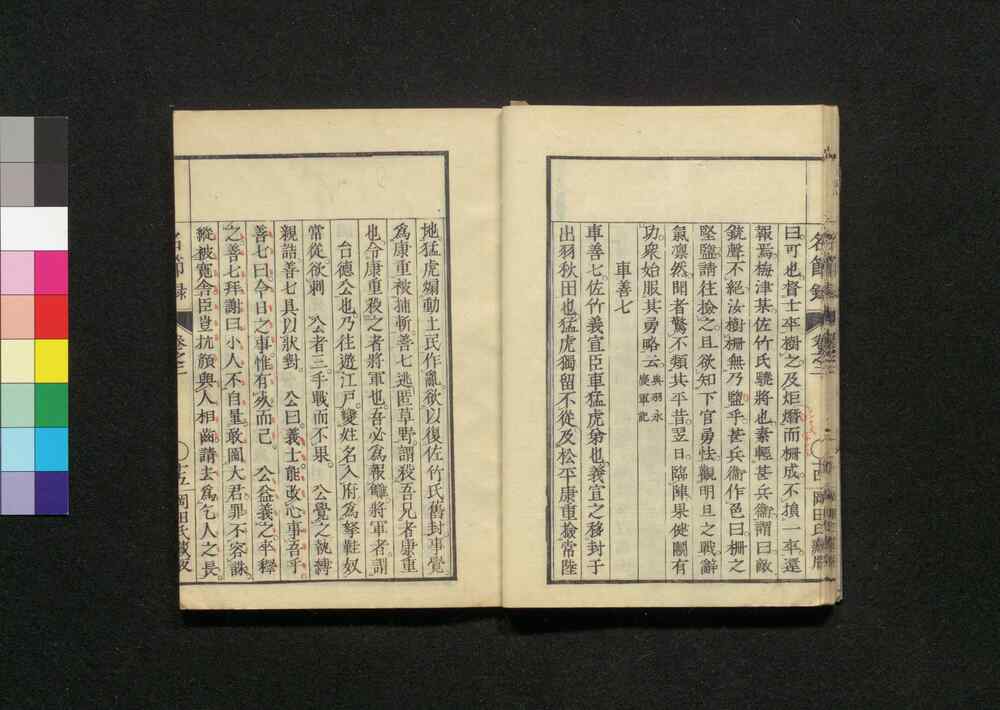 曰可也督士卒樹之及炬熸而柵成不損一卒還
報焉梅津某佐竹氏驍將也素輕甚兵衞謂曰敵
銃聲不絕汝樹柵無乃鹽乎甚兵衞作色曰柵之
堅鹽請往撿之且欲知下官勇怯觀明旦之戰辭
氣凛然聞者驚不類其平昔翌日臨陣果健鬭有
功衆始服其勇略云奧羽永
慶軍記
車善七
車善七佐竹義宣臣車猛虎弟也義宣之移封于
出羽秋田也猛虎獨留不從及松平康重撿常陸
名節錄
卷之二
十四
岡田氏藏版
地猛虎煽動土民作亂欲以復佐竹氏舊封事覺
爲康重被捕斬善七逃匿草野謂殺吾兄者康重
也令康重殺之者將軍也吾必爲報讎將軍者謂
台德公也乃往遊江戸變姓名入府爲拏鞋奴
常從欲刺 公者三手戰而不果 公覺之執縛
親詰善七具以狀對 公曰義士能改心事吾乎
善七曰今日之事惟有死而已 公益義之卒釋
之善七拜謝曰小人不自量敢圖大君罪不容誅
縱被寬舍臣豈抗顏與人相齒請去爲乞人之長
名節錄
卷之二
十五
岡田氏藏版